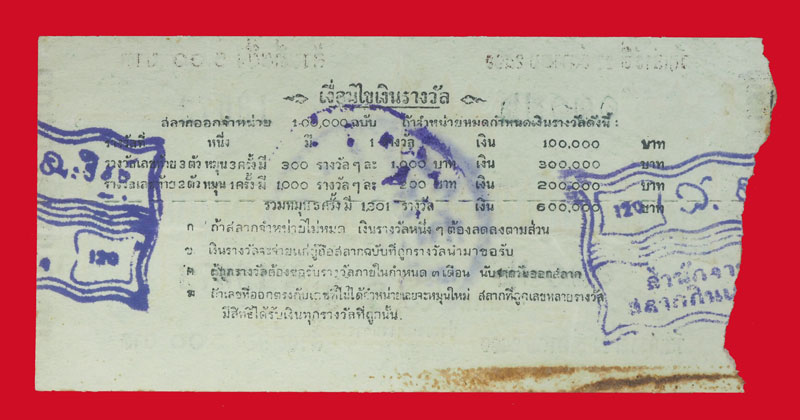 เงื่อนไขเงินรางวัล
สลากออกจำหน่าย 1,000,000 ฉบับ ถ้าจำหน่ายหมดกำหนดเงินรางวัลดังนี้ :
รางวัลที่ หนึ่ง มี 1 รางวัล เงิน 100,000 บาท
รางวัลเลขท้าย 3 ตัว หมุน 3 ครั้ง มี 300 รางวัล ๆ ละ 1,000 บาท เงิน 300,000 บาท
รางวัลเลขท้าย 2 ตัว หมุน 1 ครั้ง มี 1,000 รางวัล ๆ ละ 200 บาท เงิน 200,000 บาท
รวมหมุน 5 ครั้ง มี 1,301 รางวัล เงิน 600,000 บาท
ก ถ้าสลากจำหน่ายไม่หมด เงินรางวัลหนึ่ง ๆ ต้องลดลงตามส่วน
ข เงินรางวัลจะจ่ายแก่ผู้ถือสลากฉบับที่ถูกรางวัลนำมาขอรับ
ค ผู้ถูกรางวัลต้องขอรับรางวัลภายในกำหนด ๓ เดือน นับจากวันออกสลาก
ฆ ถ้าเลขที่ออกตรงกับเลขที่ไม่ได้จำหน่ายจะหมุนใหม่ สลากที่ถูกเลขหลายรางวัล
มีสิทธิได้รับเงินทุกรางวัลที่ถูกนั้น.
120
120
สำนักงา
สลากกินแ